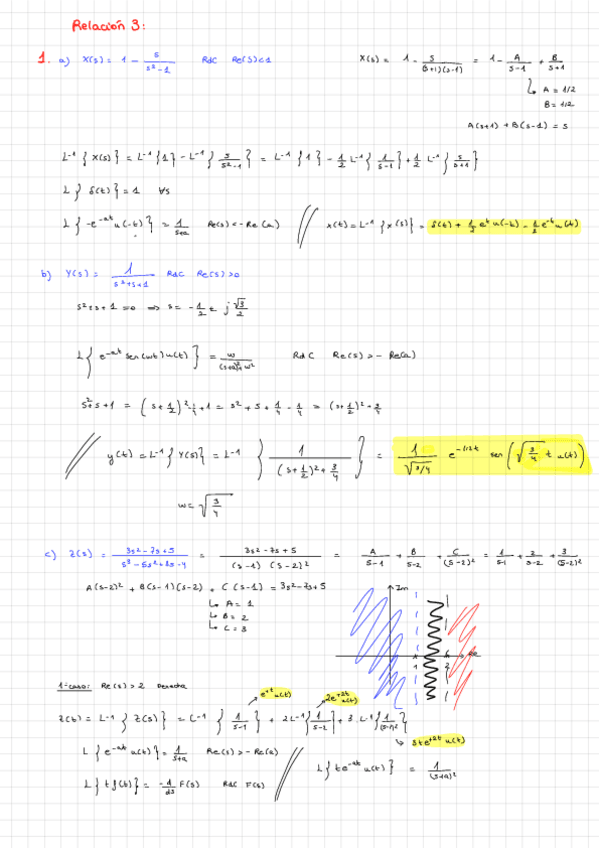 Relación 3:
1. a) X(s) = 1 - s/(s²-1) RdC Re(s)<1
X(s) = 1 - s/((s+1)(s-1)) = 1 - A/(s-1) + B/(s+1)
↳ A = 1/2
B = 1/2
A(s+1) + B(s-1) = s
L⁻¹{X(s)} = L⁻¹{1} - L⁻¹{s/(s²-1)} = L⁻¹{1} - 1/2 L⁻¹{1/(s-1)} + 1/2 L⁻¹{s/(s+1)}
L{δ(t)} = 1 ∀s
L{-e^(-at) u(-t)} = 1/(s+a) Re(s) < -Re(a) // x(t) = L⁻¹{x(s)} = δ(t) + 1/2 e^t u(-t) - 1/2 e^(-t) u(t)
b) Y(s) = 1/(s²+s+1) RdC Re(s)>0
s²+s+1 = 0 ⇒ s = -1/2 ± j √3/2
L{e^(-at) sen(wt) u(t)} = w/((s+a)²+w²) RdC Re(s) > -Re(a)
s²+s+1 = (s+1/2)² - 1/4 + 1 = s² + s + 1/4 - 1/4 = (s+1/2)² + 3/4
// y(t) = L⁻¹{Y(s)} = L⁻¹{1/((s+1/2)²+3/4)} = 1/√(3/4) e^(-1/2t) sen(√(3/4) t u(t))
w = √(3/4)
c) Z(s) = (3s²-7s+5)/(s³-5s²+8s-4) = (3s²-7s+5)/((s-1)(s-2)²) = A/(s-1) + B/(s-2) + C/(s-2)² = 1/(s-1) + 2/(s-2) + 3/(s-2)²
A(s-2)² + B(s-1)(s-2) + C(s-1) = 3s²-7s+5
↳ A = 1
↳ B = 2
↳ C = 3
Im
Re
1
2
1er caso: Re(s) > 2 Derecha
e^(+t) u(t)
2e^(+2t) u(t)
z(t) = L⁻¹{Z(s)} = L⁻¹{1/(s-1)} + 2L⁻¹{1/(s-2)} + 3 L⁻¹{1/(s-2)²}
↳ 3te^(+2t) u(t)
L{e^(-at) u(t)} = 1/(s+a) Re(s) > -Re(a)
L{te^(-at) u(t)} = 1/(s+a)²
L{t f(t)} = -1/ds F(s) RdC F(s)